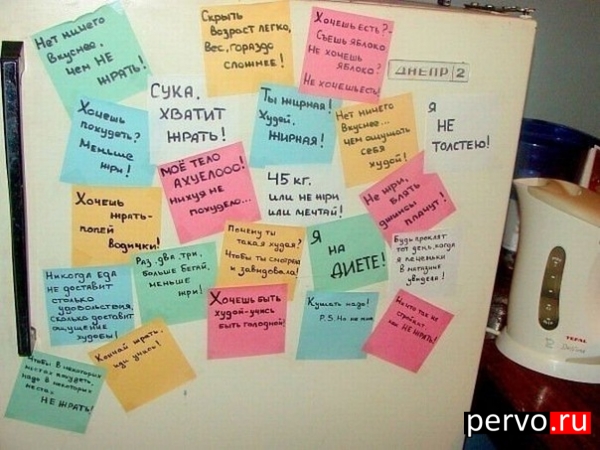 Нет ничего
вкуснее,
чем НЕ
ЖРАТЬ!
Скрыть
возраст легко,
Вес, гораздо
сложнее!
Хочешь есть? -
Съешь яблоко
Не хочешь
яблоко?
Не хочешь есть!
ДНЕПР 2
СУКА,
ХВАТИТ
ЖРАТЬ!
Ты жирная!
Худей,
ЖИРНАЯ!
Нет ничего
Вкуснее...
чем ощущать
себя
худой!
Я
НЕ
ТОЛСТЕЮ!
Хочешь
похудеть?
Меньше
жри!
МОЁ ТЕЛО
АХУЕЛООО!
нихуя не
похудело...
45 кг.
или не жри
или мечтай!
Не жри,
блять
джинсы
плачут!
Хочешь
жрать -
попей
водички!
Раз, два, три,
больше бегай,
меньше
жри!
Почему ты
такая худая?
Чтобы ты смотрела
и завидовала!
Я
НА
ДИЕТЕ!
Будь проклят
тот день, когда
я печеньки
в магазине
увидела!
Никогда еда
не доставит
столько
удовольствия,
сколько доставит
ощущение
худобы!
Кончай жрать,
иди учись!
Хочешь быть
худой - учись
быть голодной!
Кушать надо!
P.S. Но не мне
Ничто так не
стройнит,
как НЕ ЖРАТЬ!
Чтобы в некоторых
местах похудеть,
надо в некоторых
местах
НЕ ЖРАТЬ!
TEFAL
pervo.ru